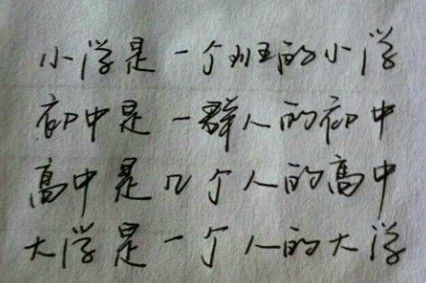 小学是一个班的小学
初中是一群人的初中
高中是几个人的高中
大学是一个人的大学